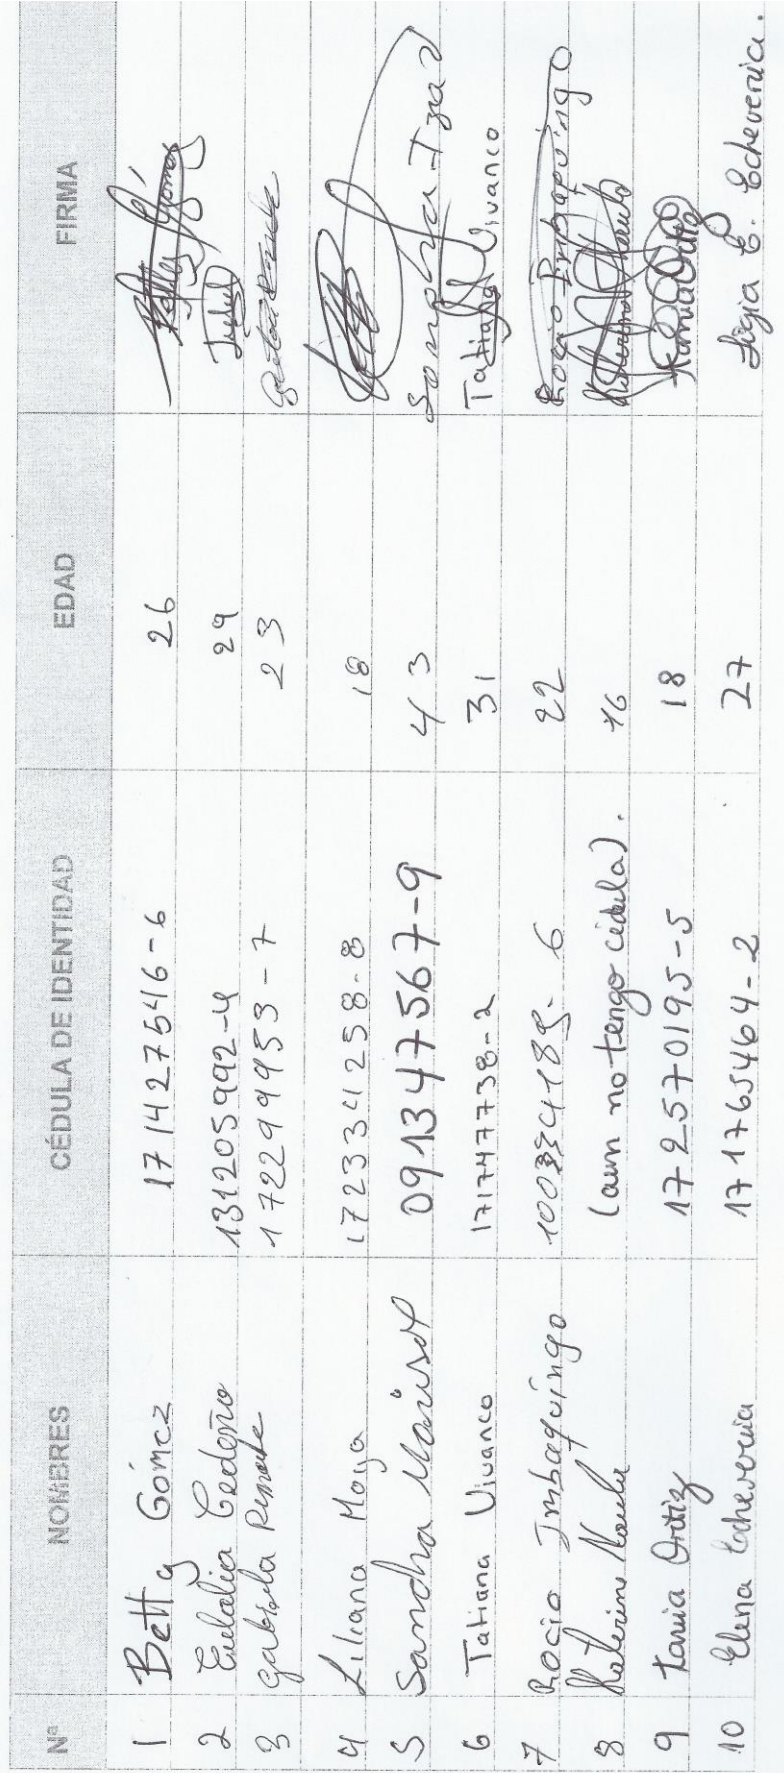 Nª NOMBRES CÉDULA DE IDENTIDAD EDAD FIRMA
1 Betty Gómez 171427546-6 26 Gómez
2 Eulalia Cedeño 131205992-4 29
3 Gabriela 172299953-7 23
4 Liliana Moya 172334258-8 18
5 Sandra Marisol 091347567-9 43
6 Tatiana Vivanco 171747738-2 31 Tatiana Vivanco
7 Rocio Imbaquingo 22 Rocio Imbaquingo
8 Katerine (aun no tengo cédula). 16
9 Tania Ortiz 172570195-5 18 Tania Ortiz
10 Elena Echeverria 171765464-2 27 Ligia E. Echeverria.